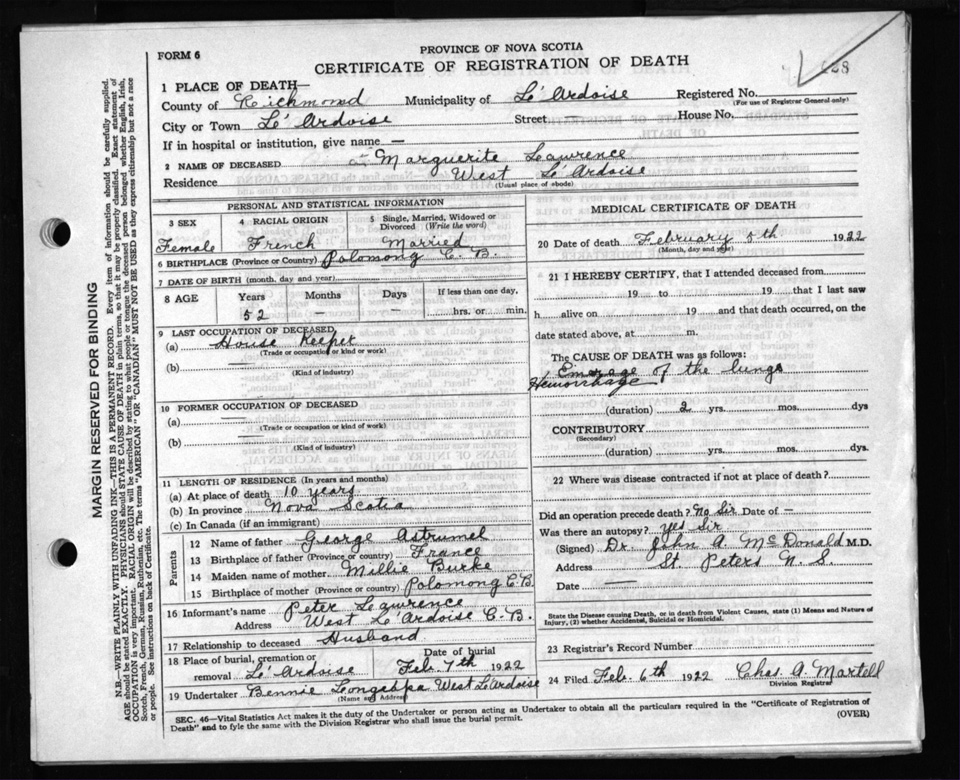 PROVINCE OF NOVA SCOTIA
FORM 6
CERTIFICATE OF REGISTRATION OF DEATH
1 PLACE OF DEATH—
County of Richmond Municipality of Le' Ardoise Registered No.
(For use of Registrar General only)
City or Town Le' Ardoise Street House No.
If in hospital or institution, give name —
2 NAME OF DECEASED Marguerite Lawrence
Residence West Le Ardoise
(Usual place of abode)
PERSONAL AND STATISTICAL INFORMATION
3 SEX 4 RACIAL ORIGIN 5 Single, Married, Widowed or Divorced (Write the word)
Female French Married
6 BIRTHPLACE (Province or Country) Polomong C. B.
7 DATE OF BIRTH (month, day and year)
8 AGE Years Months Days If less than one day,
52 — — hrs. or min.
9 LAST OCCUPATION OF DECEASED
(a) House Keeper
(Trade or occupation or kind or work)
(b)
(Kind of industry)
10 FORMER OCCUPATION OF DECEASED
(a)
(Trade or occupation or kind of work)
(b)
(Kind of industry)
11 LENGTH OF RESIDENCE (In years and months)
(a) At place of death 10 years
(b) In province Nova Scotia
(c) In Canada (if an immigrant)
Parents
12 Name of father George Astrumel
13 Birthplace of father (Province or country) France
14 Maiden name of mother Millie Burke
15 Birthplace of mother (Province or country) Polomong C. B.
16 Informant's name Peter Lawrence
Address West Le Ardoise C. B.
17 Relationship to deceased Husband
18 Place of burial, cremation or removal Le' Ardoise Date of burial Feb. 7th 1922
19 Undertaker Bennie West Le Ardoise
(Name and Address)
MEDICAL CERTIFICATE OF DEATH
20 Date of death February 5th 1922
(Month, day and year)
21 I HEREBY CERTIFY, that I attended deceased from
19 to 19 that I last saw
h alive on 19 and that death occurred, on the
date stated above, at m.
The CAUSE OF DEATH was as follows:
of the lungs
Hemorrhage
(duration) 2 yrs. mos. dys
CONTRIBUTORY
(Secondary)
(duration) yrs. mos. dys.
22 Where was disease contracted if not at place of death?
Did an operation precede death? No Sir Date of —
Was there an autopsy? Yes Sir
(Signed) Dr John A. McDonald M.D.
Address St. Peters N. S.
Date —
State the Disease causing Death, or in death from Violent Causes, state (1) Means and Nature of
Injury, (2) whether Accidental, Suicidal or Homicidal.
23 Registrar's Record Number
24 Filed Feb. 6th 1922 Chas A. Martell
Division Registrar
SEC. 46—Vital Statistics Act makes it the duty of the Undertaker or person acting as Undertaker to obtain all the particulars required in the "Certificate of Registration of
Death" and to fyle the same with the Division Registrar who shall issue the burial permit.
(OVER)
MARGIN RESERVED FOR BINDING
N.B.—WRITE PLAINLY WITH UNFADING INK—THIS IS A PERMANENT RECORD. Every item of information should be carefully supplied.
AGE should be stated EXACTLY. PHYSICIANS should STATE CAUSE OF DEATH in plain terms, so that it may be properly classified. Exact statement of
OCCUPATION is very important. RACIAL ORIGIN will be described by stating to what people or tongue the deceased person belonged whether English, Irish,
Scotch, French, German, Russian, Ruthenian, etc. The terms "AMERICAN" OR "CANADIAN" MUST NOT BE USED as they express citizenship but not a race
or people. See instructions on back of Certificate.